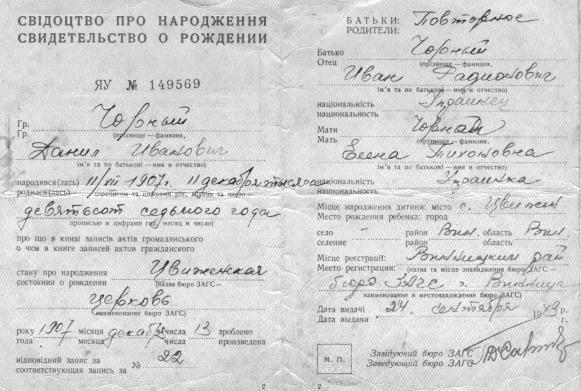 СВІДОЦТВО ПРО НАРОДЖЕННЯ
СВИДЕТЕЛЬСТВО О РОЖДЕНИИ
ЯУ № 149569
Гр. Чорный
Гр.
(прізвище — фамилия,
Данил Иванович
ім'я та по батькові — имя и отчество)
народився(лась) 11/XII 1907 г. 11 декабря тысяча
родился(лась)
девятьсот седьмого года
прописью и цифрами год, месяц и число)
про що в книзі записів актів громадянського
о чем в книге записей актов гражданского
стану про народження Цвиженская
состояния о рождении
(назва бюро ЗАГС —
церковь
наименование бюро ЗАГС)
року 1907 місяця декабр числа 13 зроблено
года месяца числа произведена
відповідний запис за № 22
соответствующая запись за
2
БАТЬКИ: Повторное
РОДИТЕЛИ:
Батько Чорный
Отец
(прізвище — фамилия,
Иван Радионович
ім'я та по батькові — имя и отчество)
національність Украинец
национальность
Мати Чорная
Мать
(прізвище — фамилия,
Елена Тихоновна
ім'я та по батькові — имя и отчество)
національність Украинка
национальность
Місце народження дитини: місто с. Цвижин
Место рождения ребенка: город
село — район Вин. область Вин.
селение район область
Місце реєстрації: Винницкий рай
Место регистрации: (назва та місце знаходження бюро ЗАГС —
бюро ЗАГС г. Винница
наименование и местонахождение бюро ЗАГС)
Дата видачі 24 сентября 1949 г.
Дата выдачи
М. П.
Завідуючий бюро ЗАГС
Заведующий бюро ЗАГС
2